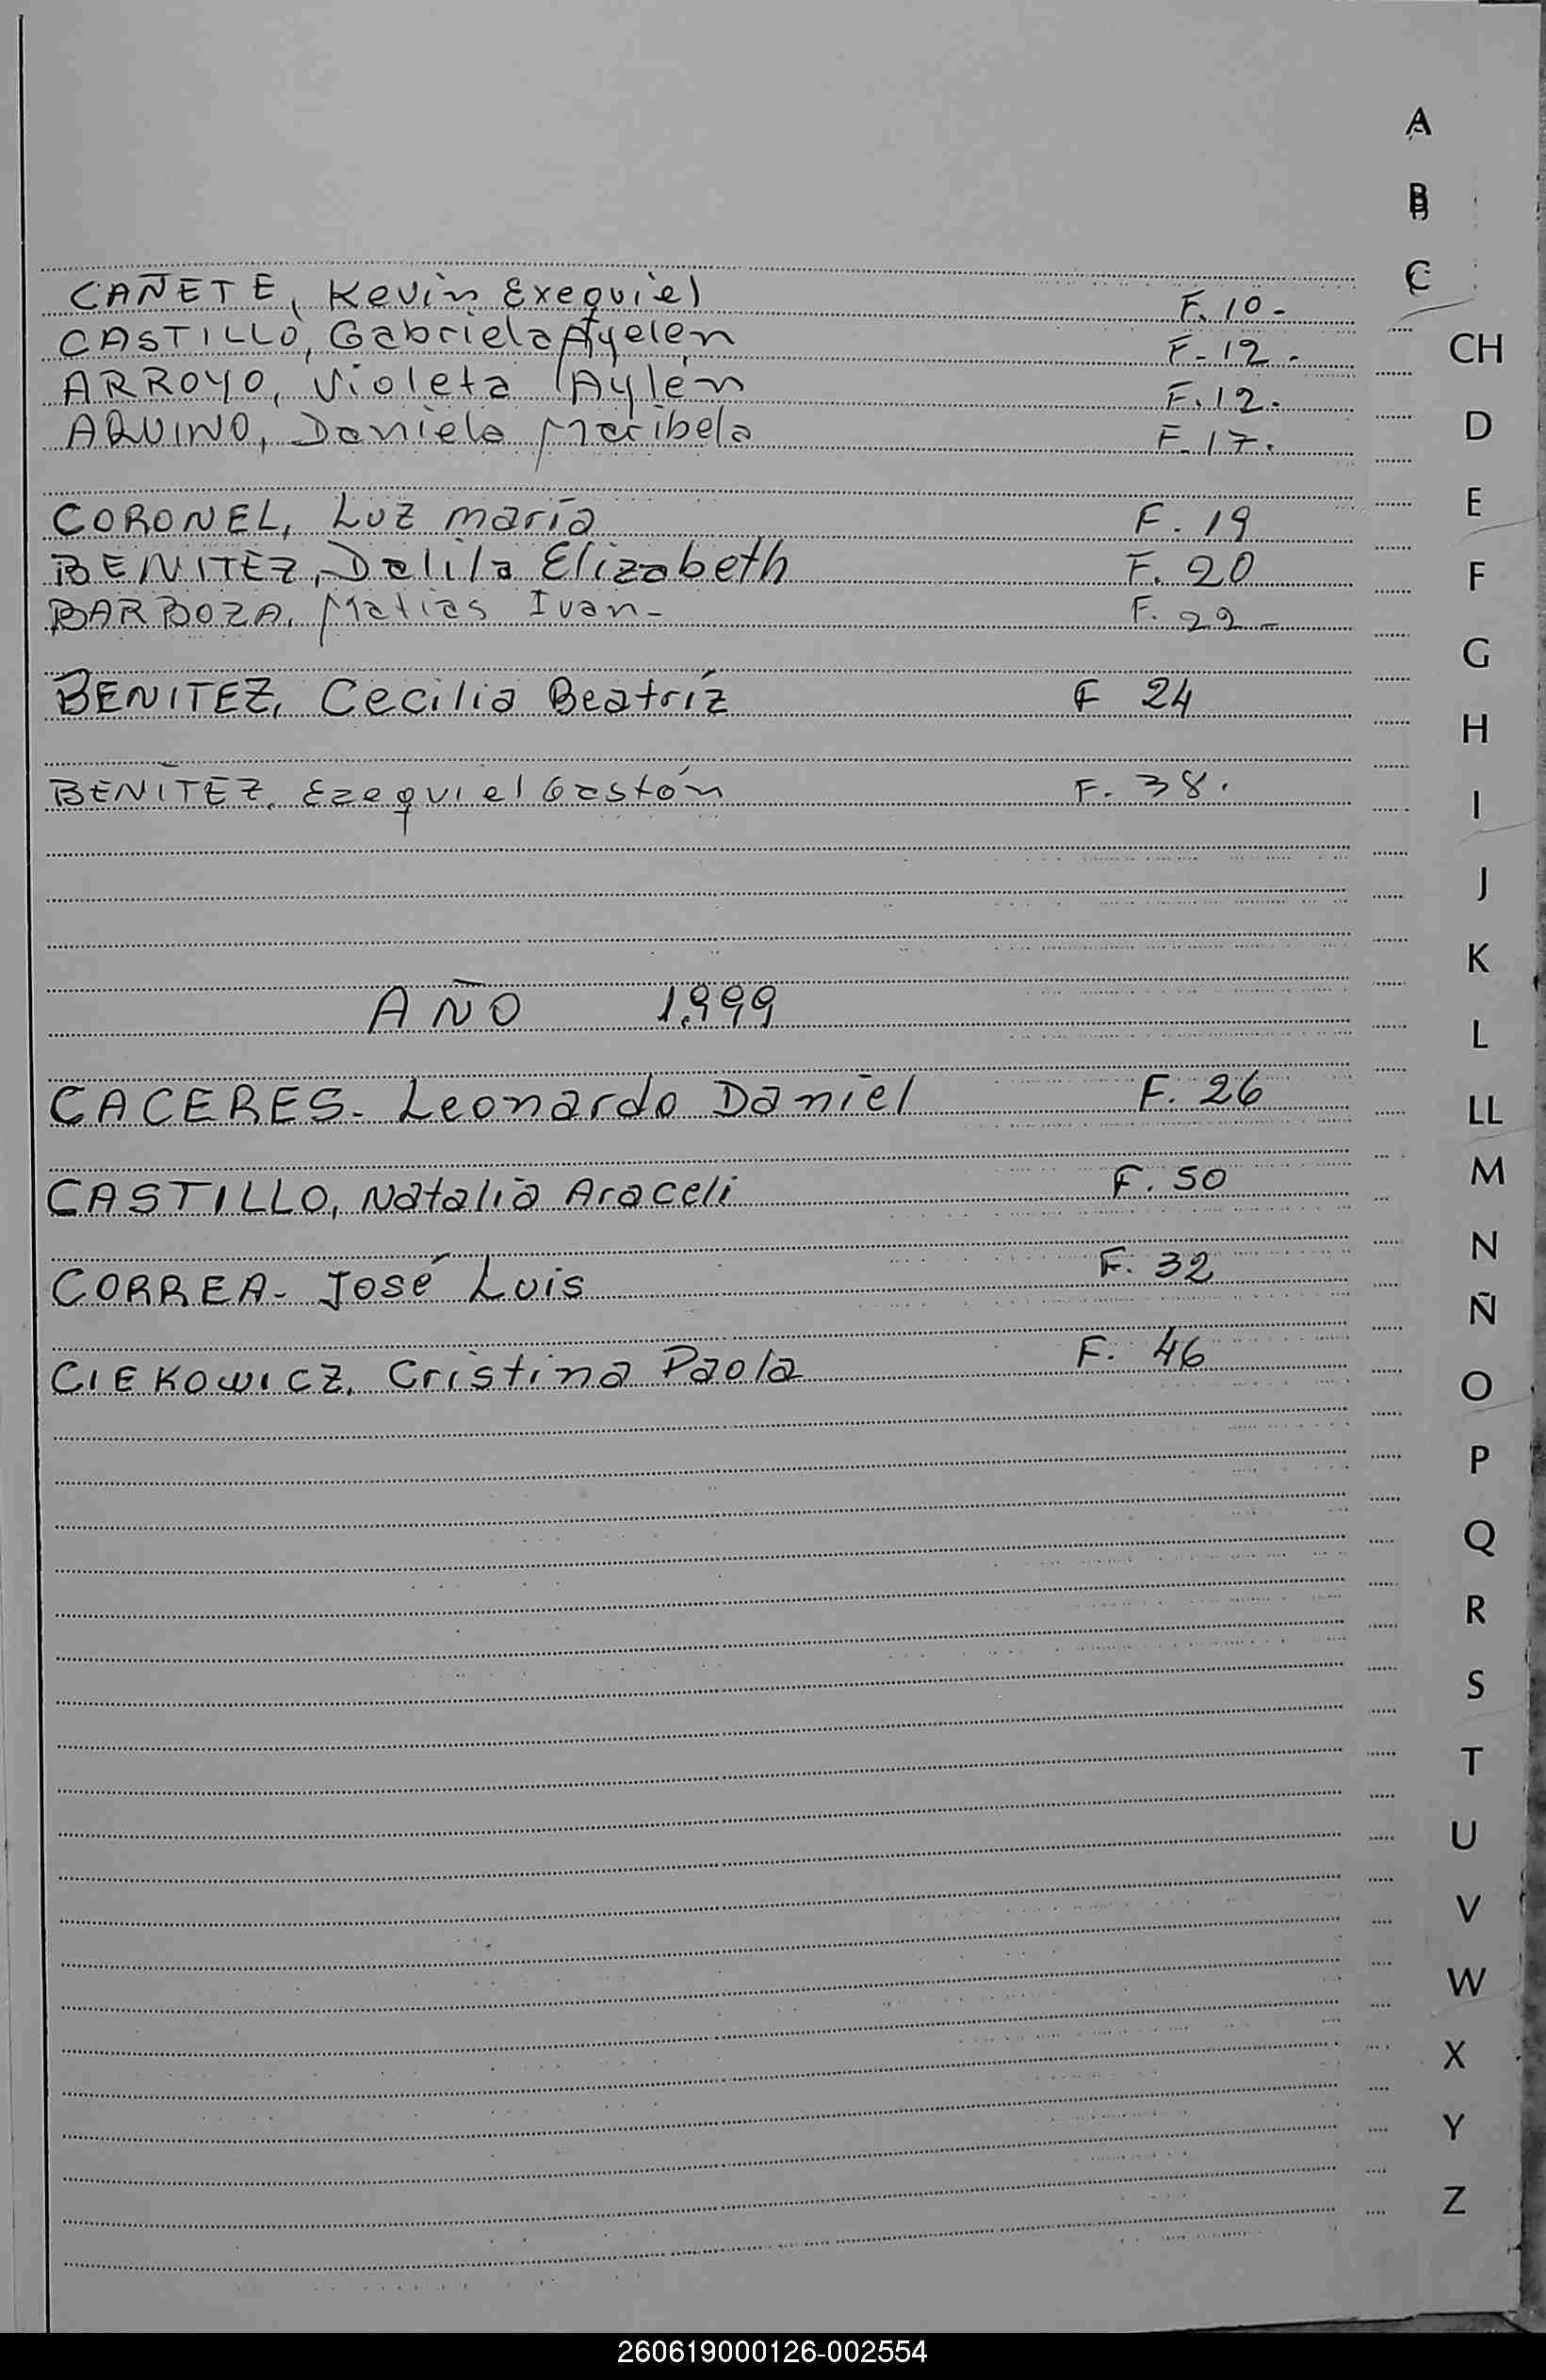 A
B
C
CAÑETE, Kevin Exequiel F. 10 -
CASTILLO, Gabriela Ayelén F. 12 -
CH
ARROYO, Violeta Aylén F. 12.
AQUINO, Daniela Maribela F. 17.
D
CORONEL, Luz maría F. 19
E
BENITEZ, Dalila Elizabeth F. 20
F
BARBOZA, Matias Ivan - F. 22 -
G
BENITEZ, Cecilia Beatríz F 24
H
BENITEZ, Ezequiel Gastón F. 38.
I
J
K
AÑO 1.999
L
CACERES - Leonardo Daniel F. 26
LL
CASTILLO, Natalia Araceli F. 50
M
N
CORREA - José Luis F. 32
Ñ
CIEKOWICZ, Cristina Paola F. 46
O
P
Q
R
S
T
U
V
W
X
Y
Z
260619000126-002554